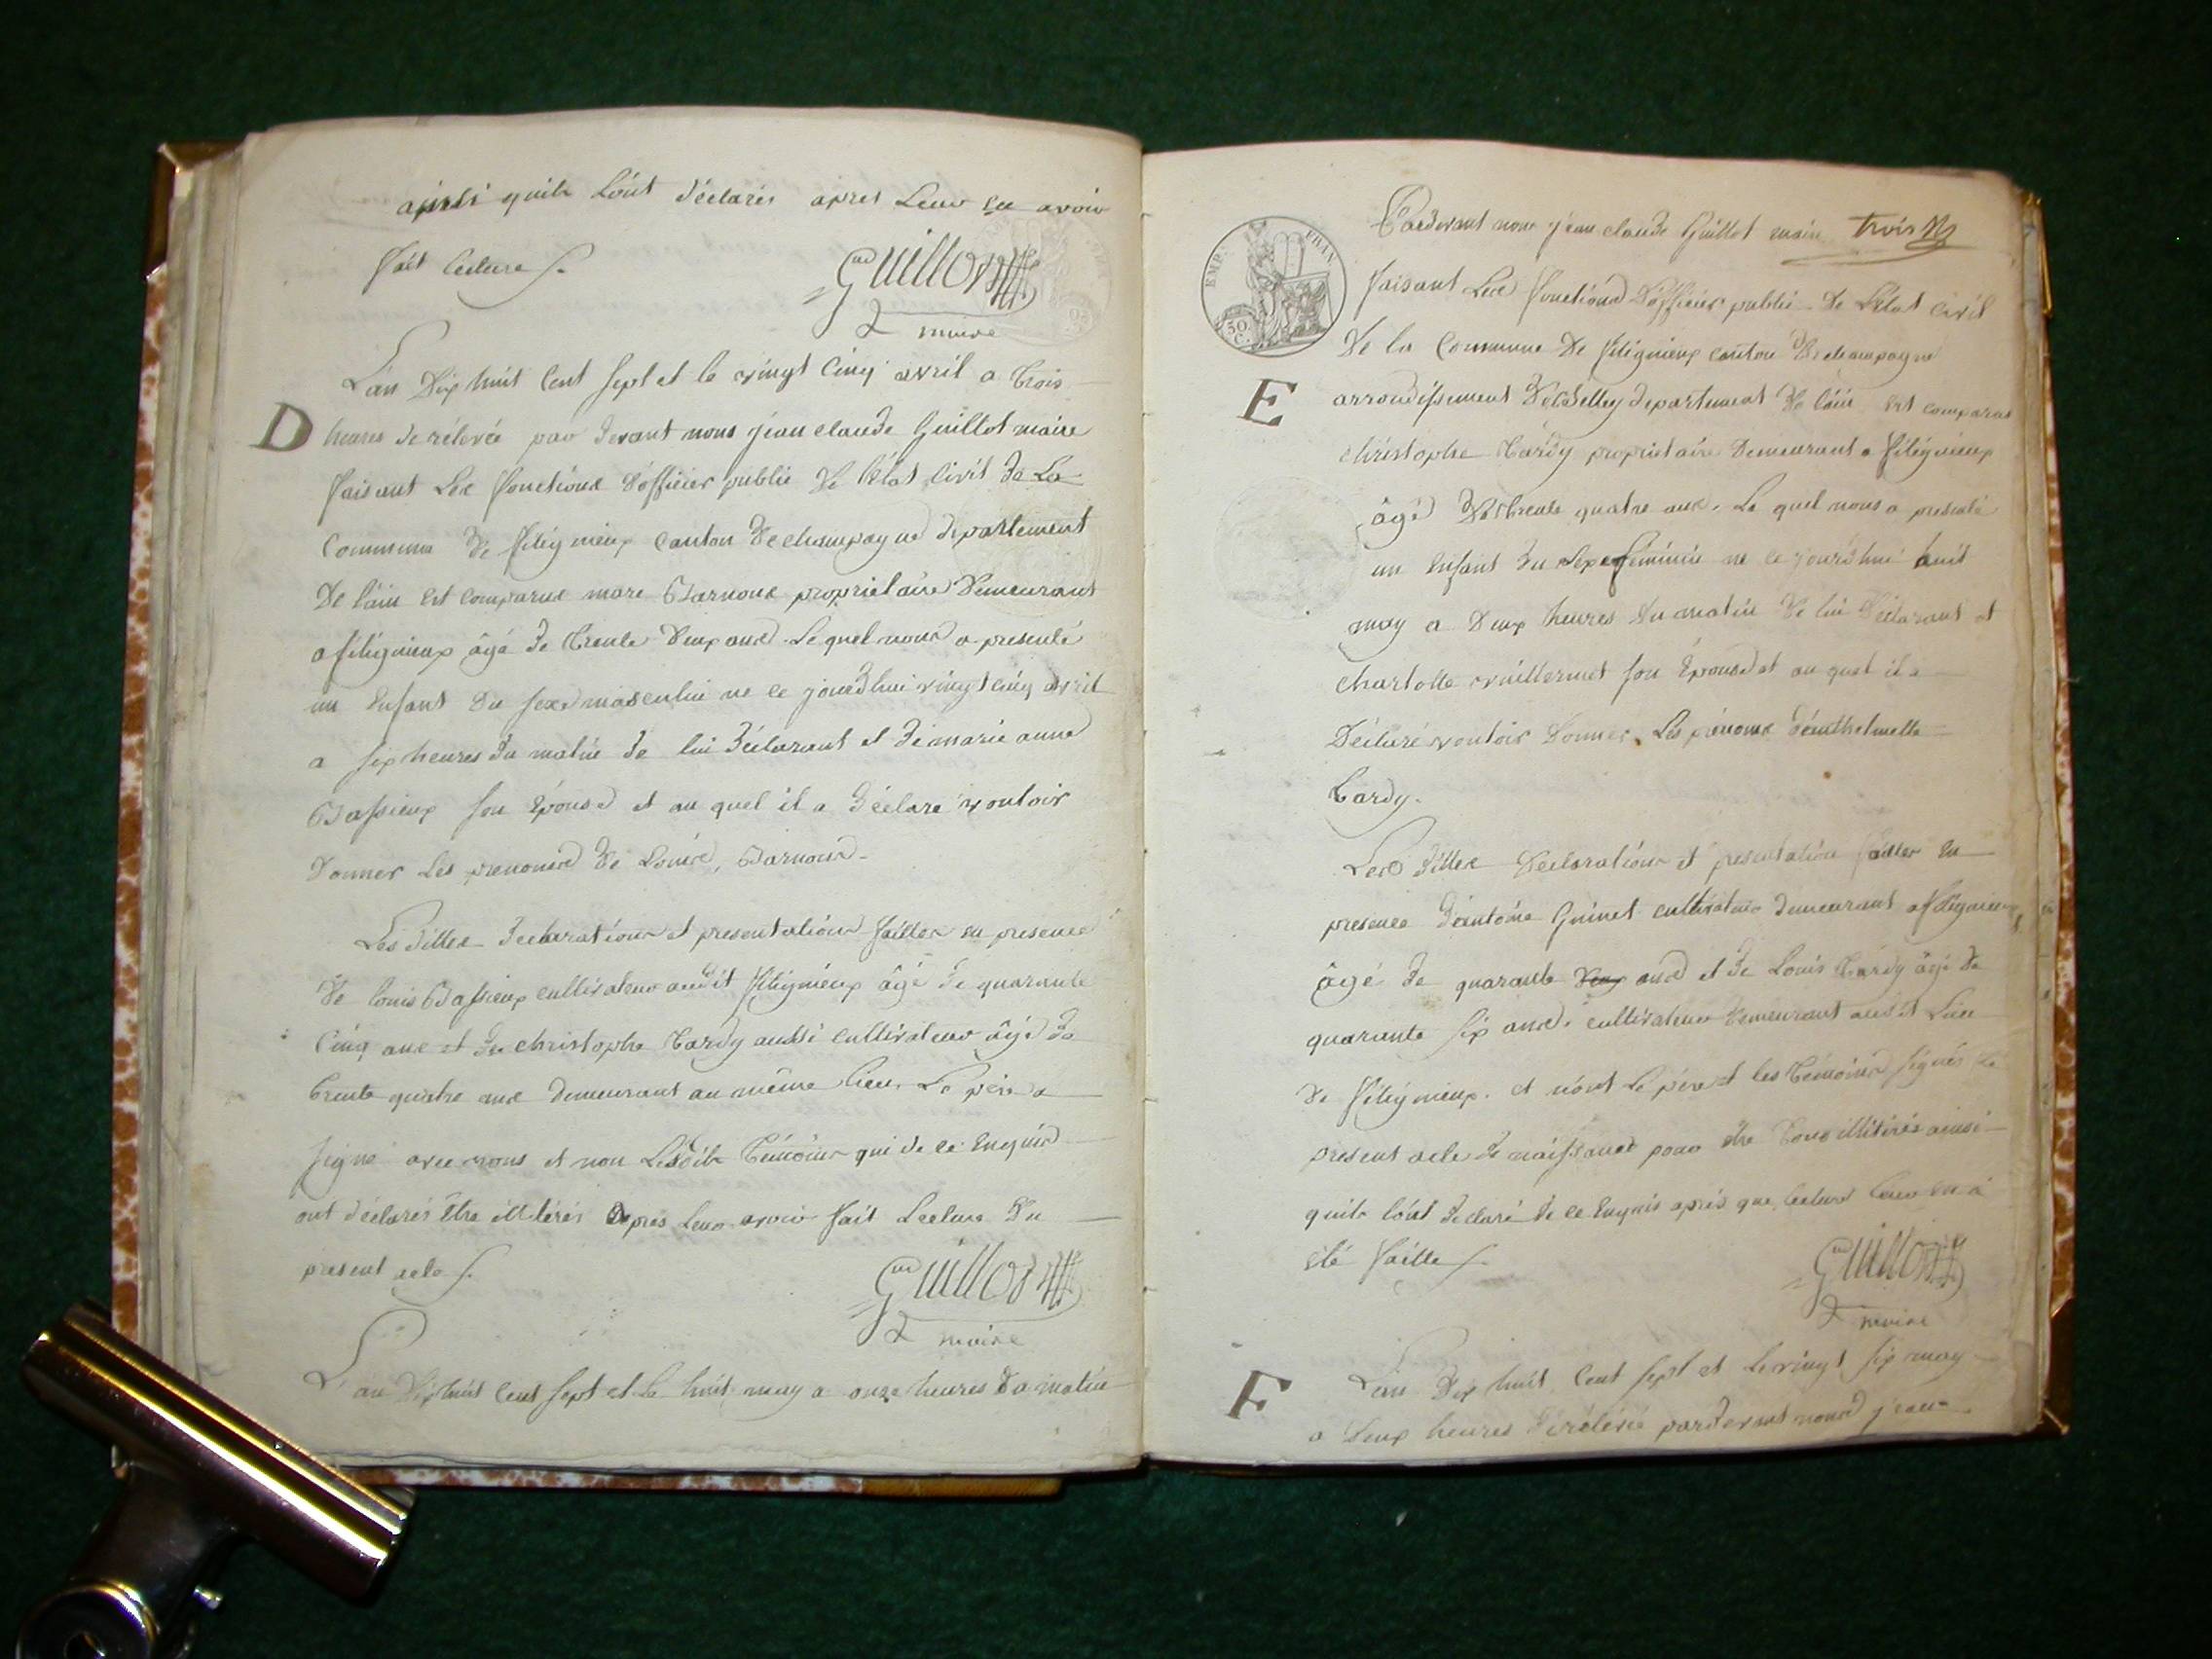 ainsi quils lont déclarés apres Leur en avoir
fait Lecture
Guillot
maire
D
L'an Dix huit Cent sept et le vingt Cinq avril a trois
heures de rélevée par devant nous jean claude Guillot maire
faisant Les fonctions d'officier public De l'état Civil de La
Commune De filignieux Canton De champagne departement
De lain est comparus marc Barnoux proprietaire Demeurant
a filignieux âgé de trente Deux ans. Le quel nous a presenté
un Enfant Du sexe masculin ne ce jourdhui vingt cinq avril
a six heures du matin de lui déclarant et de marie anne
Bassieux son Epouse et au quel il a déclaré vouloir
Donner Les prenoms De Louis, Barnoux
Les dittes declarations et presentation faittes en presence
De louis Bassieux cultivateur audit filignieux âgé de quarante
Cinq ans et de christophe tardy aussi cultivateur âgé de
trente quatre ans demeurant au même lieu. Le père a
signé avec nous et non Lesdits témoins qui de ce Enquis
ont déclarés Etre illiterés apres Leur avoir fait Lecture Du
present acte
Guillot
maire
L'an Dix huit Cent sept et le huit may a onze heures Du matin
trois
EMP. FRAN.
30. C.
Pardevant nous jean claude Guillot maire
faisant Les fonctions D'officier public De L'état Civil
De la Commune De filignieux canton De champagne
E
arrondissement De Belley departement De lain est comparus
christophe tardy proprietaire Demeurant a filignieux
âgé De trente quatre ans. Le quel nous a presenté
un Enfant du sexe féminin ne ce jourdhui huit
may a Deux heures du matin De lui Déclarant et
charlotte vuillermet son Epouse et au quel il a
Déclaré vouloir Donner Les prenoms
tardy.
Les dittes Declaration et presentation faittes En
presence d'antoine Guinet cultivateur demeurant a filignieux
âgé de quarante deux ans et de Louis tardy âgé De
quarante six ans. cultivateur Demeurant audit Lieu
De filignieux. et n'ont Le père et les témoins signés le
present acte de naissance pour être tous illitérés ainsi
quils lont declaré de ce Enquis après que Lecture Leur en a
été faitte
Guillot
maire
F
L'an Dix huit Cent sept et Le vingt six may
a Deux heures de rélévée pardevant nous jean